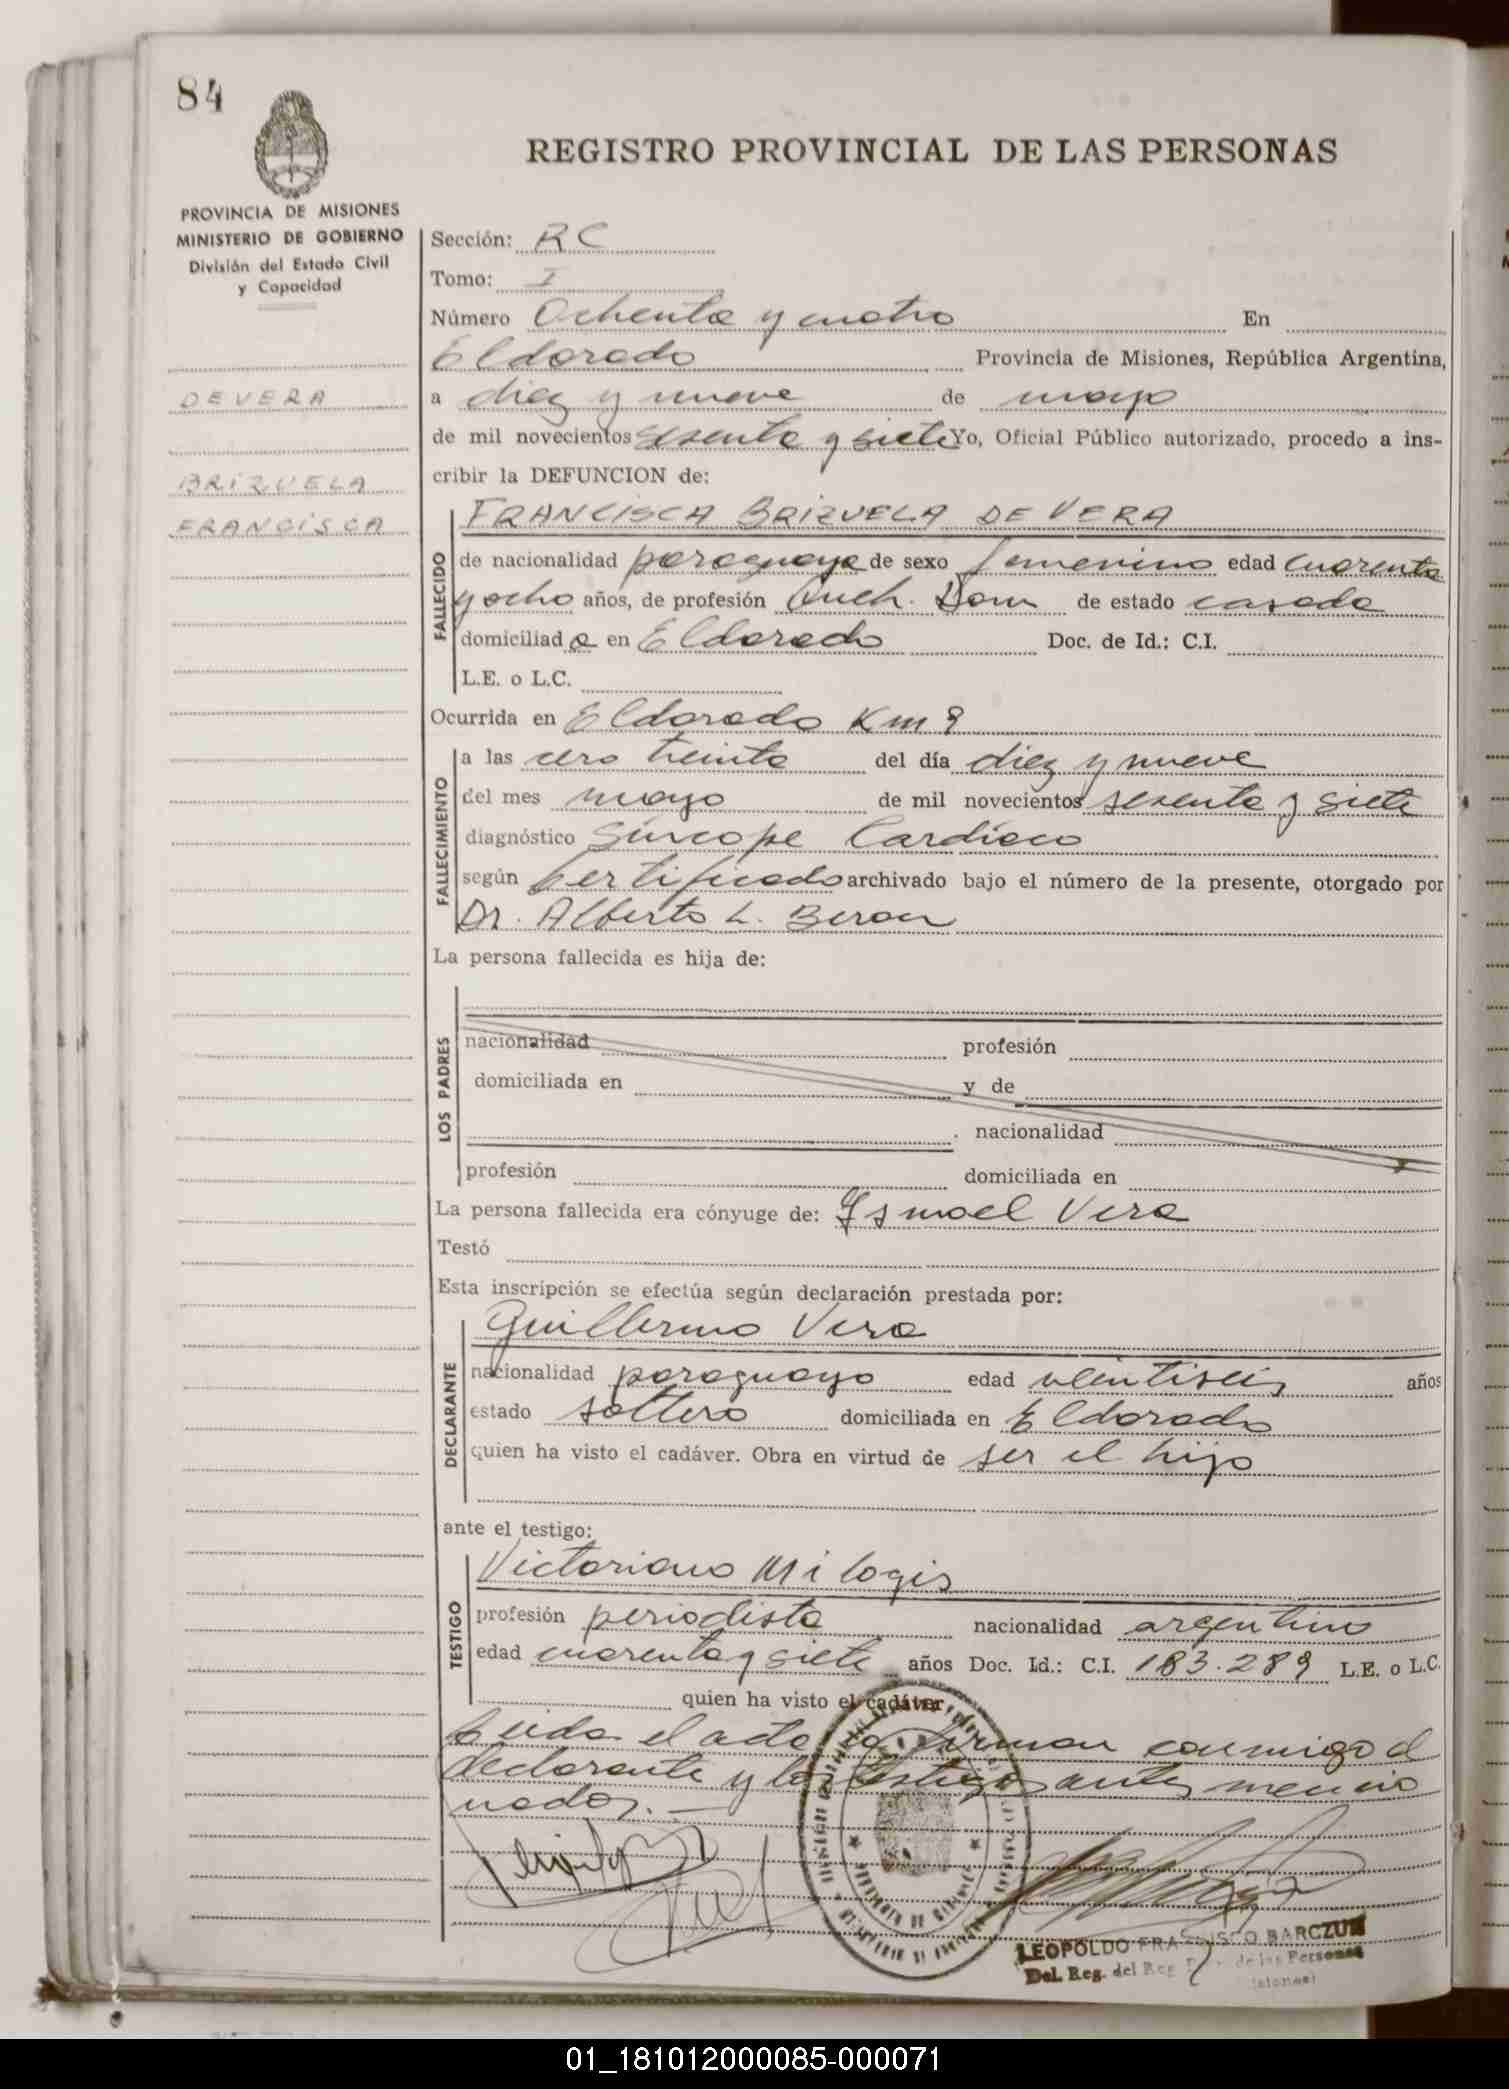 84
REGISTRO PROVINCIAL DE LAS PERSONAS
PROVINCIA DE MISIONES
MINISTERIO DE GOBIERNO
División del Estado Civil
y Capacidad
DE VERA
BRIZUELA
FRANCISCA
Sección: RC
Tomo: I
Número Ochenta y cuatro En
Eldorado Provincia de Misiones, República Argentina,
a diez y nueve de mayo
de mil novecientos sesenta y siete Yo, Oficial Público autorizado, procedo a ins-
cribir la DEFUNCION de:
FALLECIDO
FRANCISCA BRIZUELA DE VERA
de nacionalidad paraguaya de sexo femenino edad cuarenta
y ocho años, de profesión Queh. Dom de estado casada
domiciliada en Eldorado Doc. de Id.: C.I.
L.E. o L.C.
Ocurrida en Eldorado Km 9
FALLECIMIENTO
a las cero treinta del día diez y nueve
del mes mayo de mil novecientos sesenta y siete
diagnóstico Síncope Cardíaco
según certificado archivado bajo el número de la presente, otorgado por
Dr. Alberto L. Beron
La persona fallecida es hija de:
LOS PADRES
nacionalidad profesión
domiciliada en y de
nacionalidad
profesión domiciliada en
La persona fallecida era cónyuge de: Ysmael Vera
Testó
Esta inscripción se efectúa según declaración prestada por:
DECLARANTE
Guillermo Vera
nacionalidad paraguayo edad veintiseis años
estado soltero domiciliada en Eldorado
quien ha visto el cadáver. Obra en virtud de ser el hijo
ante el testigo:
TESTIGO
Victoriano Milogis
profesión periodista nacionalidad argentino
edad cuarenta y siete años Doc. Id.: C.I. 183.289 L.E. o L.C.
quien ha visto el cadáver
Leida el acta la firman conmigo el
declarante y los testigos antes mencio
nados.—
LEOPOLDO FRANCISCO BARCZUK
Del. Reg. del Reg. de las Personas
01_181012000085-000071